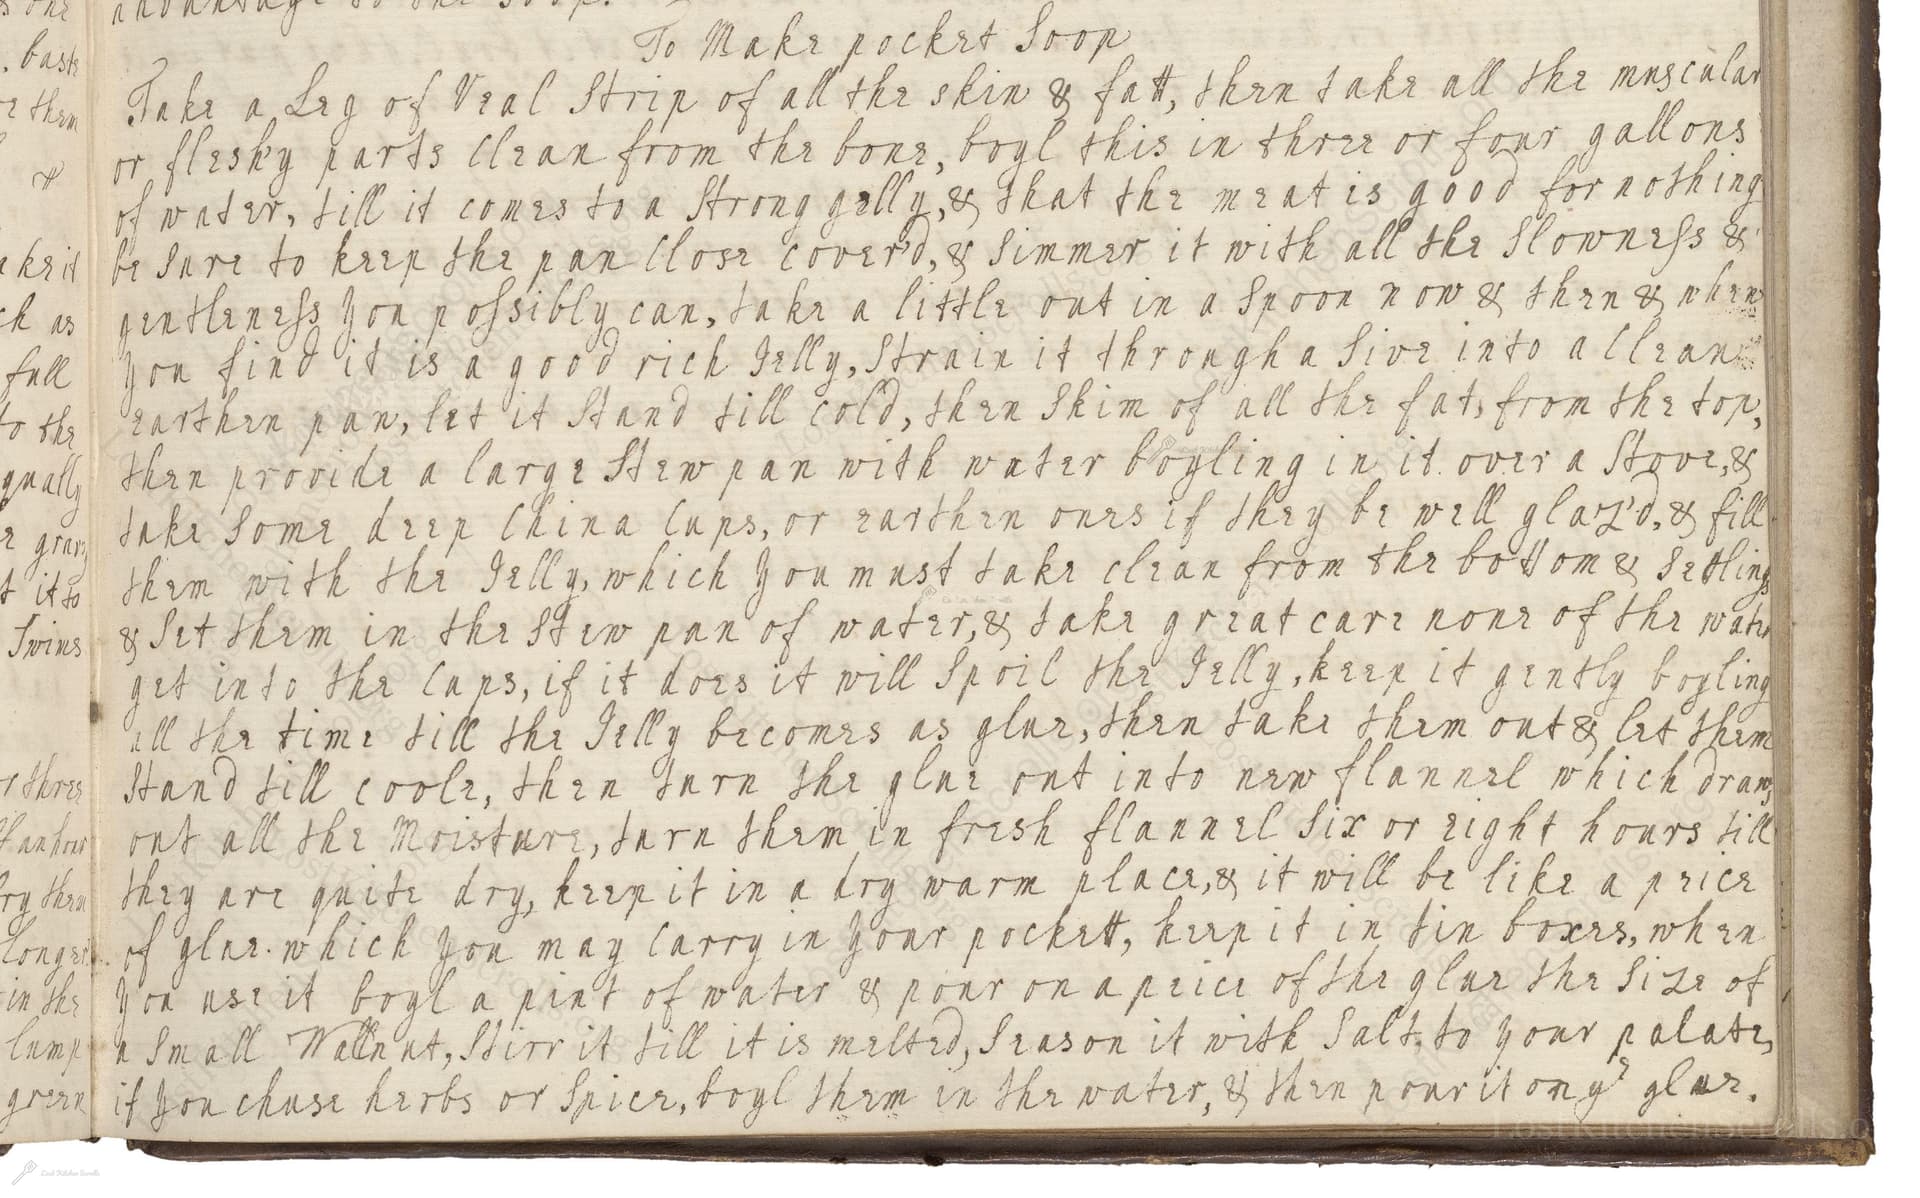 advantage to the Soop.
To Make pocket Soop
Take a Leg of Veal Strip of all the skin & fatt, then take all the muscular
or fleshy parts Clean from the bone, boyl this in three or four gallons
of water, till it comes to a Strong gelly, & that the meat is good for nothing
be Sure to keep the pan Close cover'd, & Simmer it with all the Slowness &
gentleness you possibly can, take a little out in a Spoon now & then & when
you find it is a good rich Jelly, Strain it through a Sive into a Clean
earthen pan, let it Stand till cold, then Skim of all the fat, from the top,
then provide a large Stew pan with water boyling in it over a Stove, &
take Some deep China Cups, or earthen ones if they be well glaz'd, & fill
them with the Jelly, which you must take clean from the bottom & Settlings
& Set them in the Stew pan of water, & take great care none of the water
get into the Cups, if it does it will Spoil the Jelly, keep it gently boyling
all the time till the Jelly becomes as glue, then take them out & let them
Stand till coole, then turn the glue out into new flannel which draws
out all the Moisture, turn them in fresh flannel Six or eight hours till
they are quite dry, keep it in a dry warm place, & it will be like a peice
of glue. which you may Carry in your pockett, keep it in tin boxes, when
you use it boyl a pint of water & pour on a peice of the glue the Size of
a Small Wallnut, Stirr it till it is melted, Season it with Salt, to your palate,
if you chuse herbs or Spice, boyl them in the water, & then pour it on yᵉ glue.
baste
them
ake it
ch as
full
to the
qually
gravy
t it to
Swims
or three
f an hour
ry them
longer
in the
lump
green
Lost Kitchen Scrolls